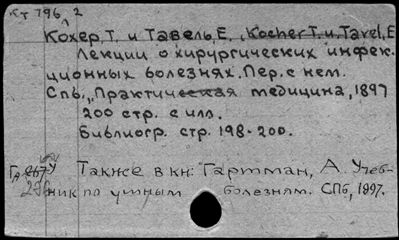 Кт 796 2
Кохер, Т. и Тавель, Е. (Kocher T. и. Tavel, E
Лекции о хирургических инфек-
ционных болезнях. Пер. с нем.
Спб., „Практическая медицина, 1897
200 стр. с илл.
Библиогр. стр. 198-200.
Также в кн: Гартман, А. Учеб-
ник по ушным болезням. СПб, 1897.